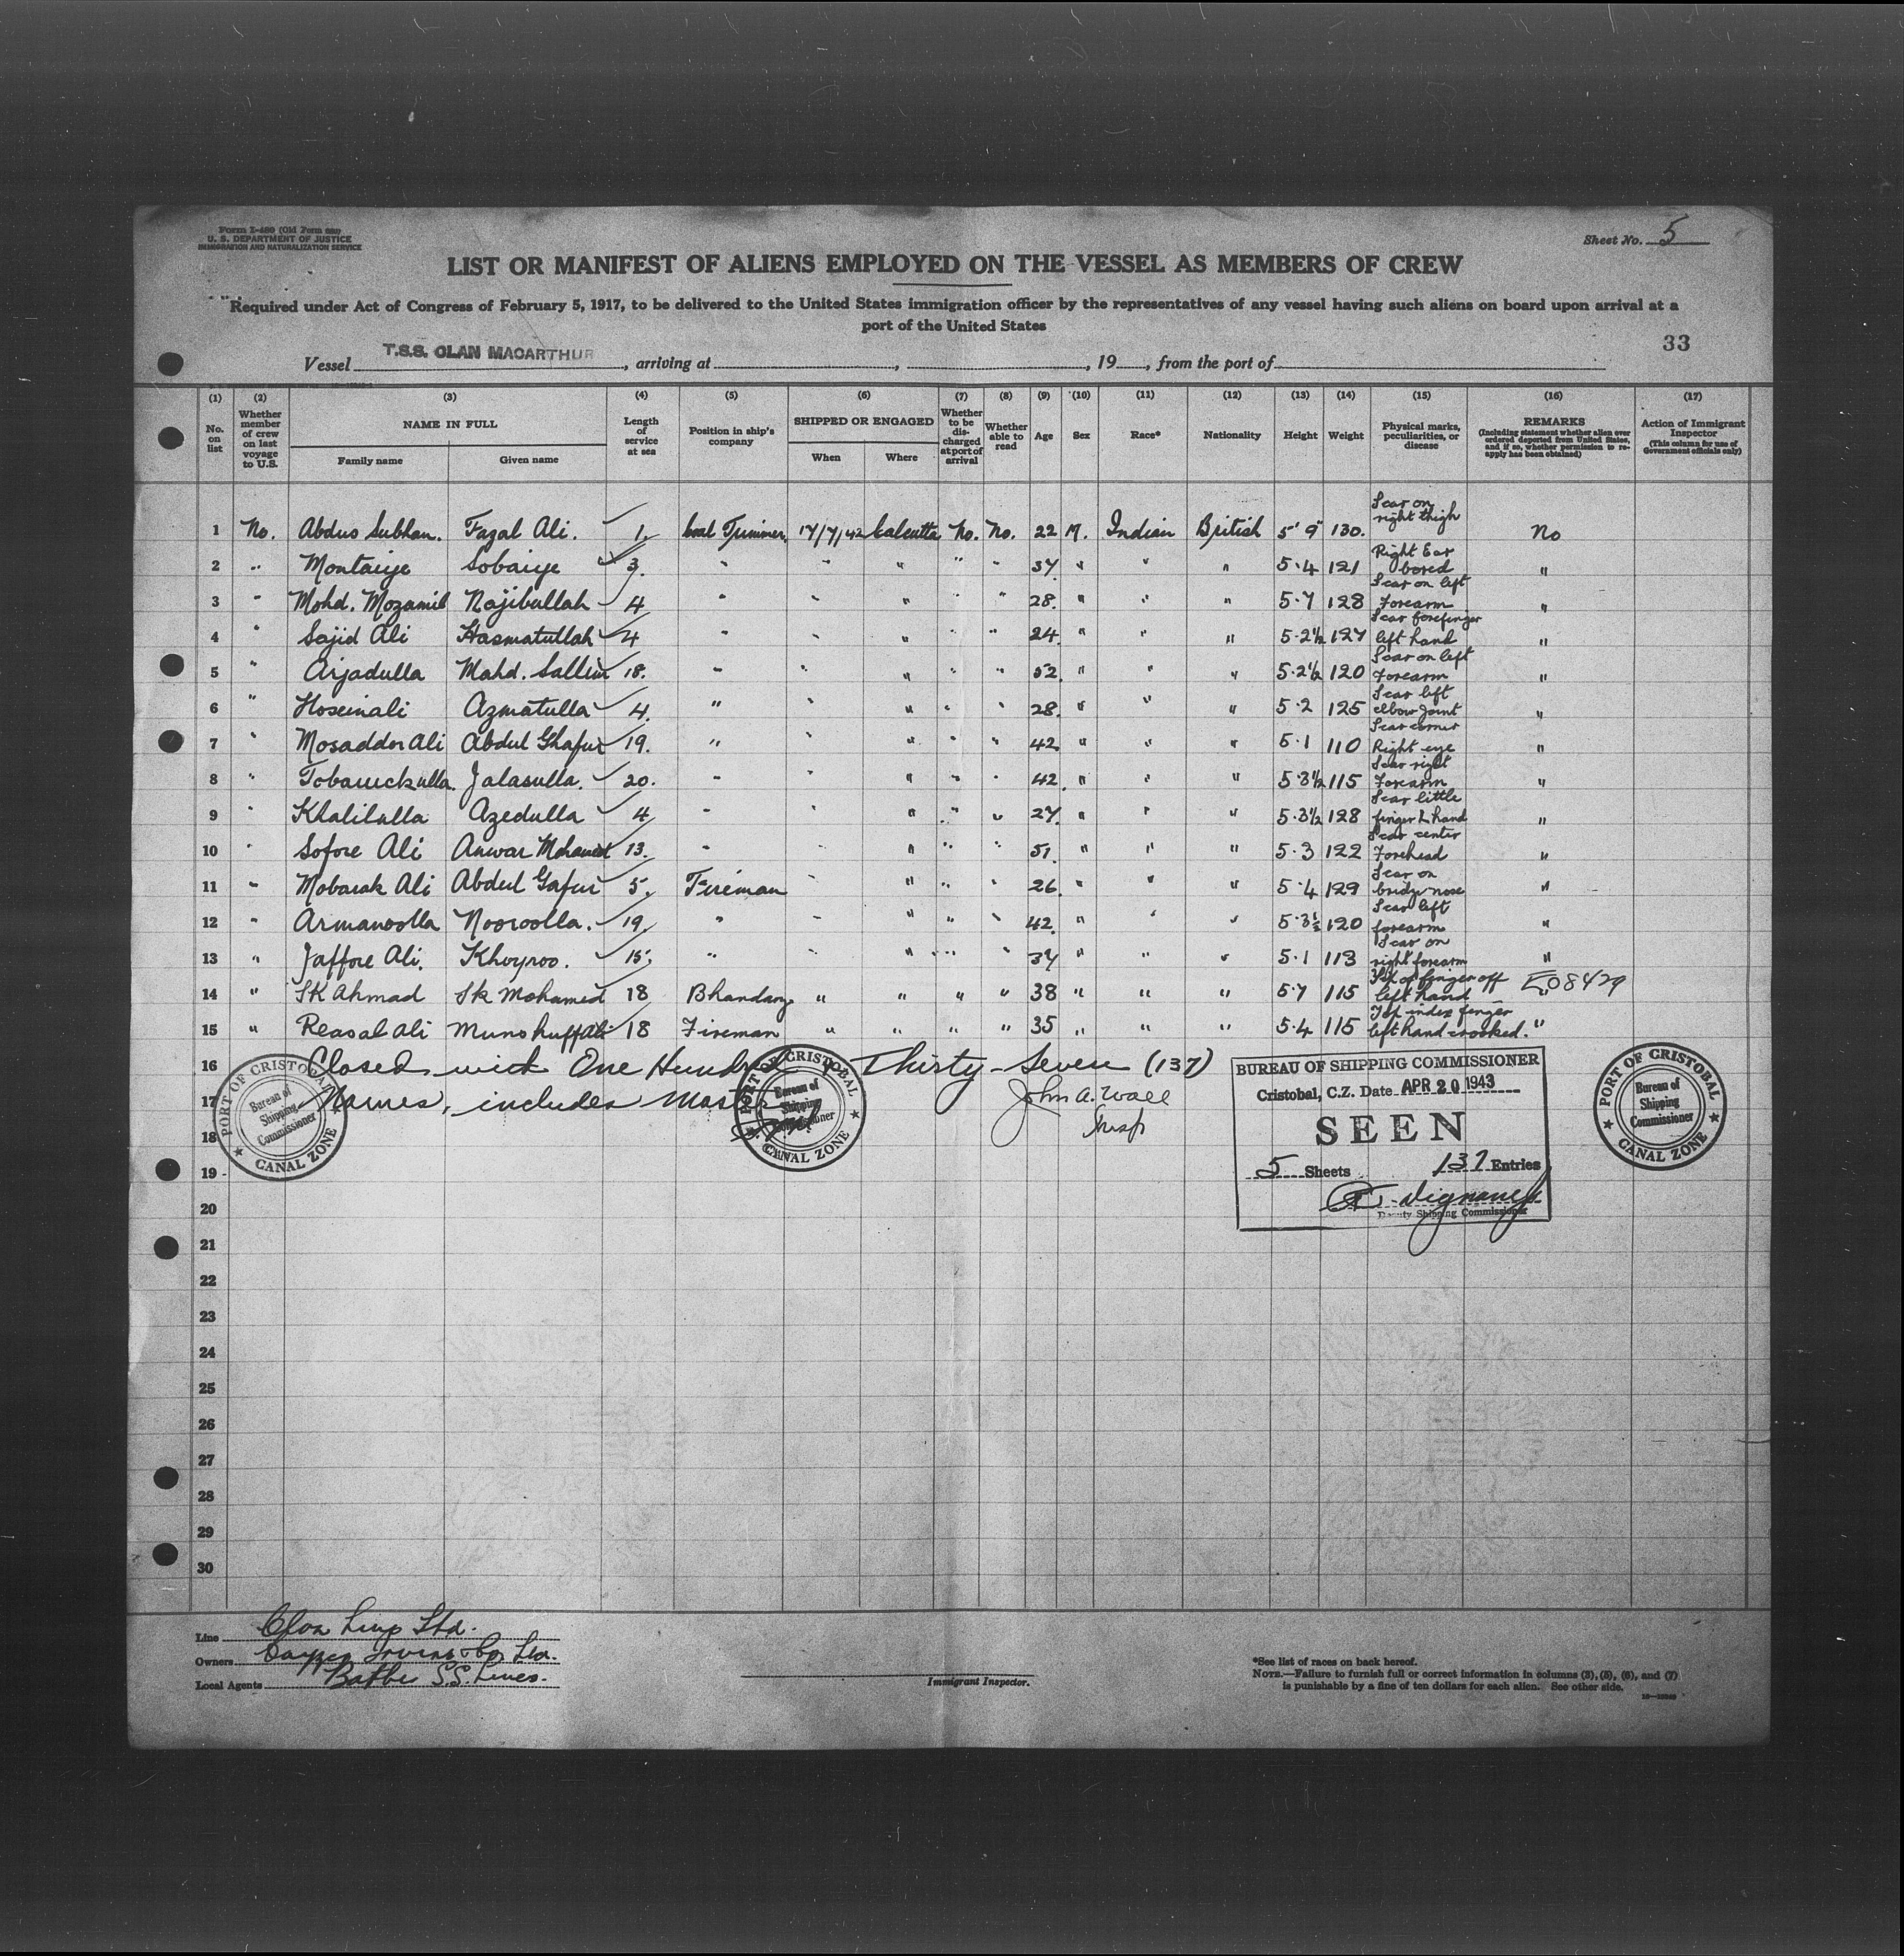 Form I-480 (Old Form 680)
U. S. DEPARTMENT OF JUSTICE
IMMIGRATION AND NATURALIZATION SERVICE
Sheet No. 5
LIST OR MANIFEST OF ALIENS EMPLOYED ON THE VESSEL AS MEMBERS OF CREW
Required under Act of Congress of February 5, 1917, to be delivered to the United States immigration officer by the representatives of any vessel having such aliens on board upon arrival at a
port of the United States
33
Vessel T.S.S. CLAN MACARTHUR, arriving at , , 19 , from the port of
(1) No. on list
(2) Whether member of crew on last voyage to U.S.
(3) NAME IN FULL Family name Given name
(4) Length of service at sea
(5) Position in ship's company
(6) SHIPPED OR ENGAGED When Where
(7) Whether to be discharged at port of arrival
(8) Whether able to read
(9) Age
(10) Sex
(11) Race*
(12) Nationality
(13) Height
(14) Weight
(15) Physical marks, peculiarities, or disease
(16) REMARKS (Including statement whether alien ever ordered deported from United States, and if so, whether permission to reapply has been obtained)
(17) Action of Immigrant Inspector (This column for use of Government officials only)
1 No. Abdus Subhan. Fazal Ali. 1. Coal Trimmer. 17/7/42 Calcutta No. No. 22 M. Indian British 5' 9" 130. Scar on right thigh No
2 " Montaiye Sobaiye 3. " " " " " 37 " " " 5.4 121 Right Ear bored "
3 " Mohd. Mozamil Najibullah 4 " " " " " 28. " " " 5.7 128 Scar on left Forearm "
4 " Sajid Ali Hasmatullah 4 " " " " " 24. " " " 5.2½ 127 Scar forefinger left hand "
5 " Arjadulla Mahd. Sallim 18. " " " " " 52. " " " 5.2½ 120 Scar on left Forearm "
6 " Hoseinali Azmatulla 4. " " " " " 28. " " " 5.2 125 Scar left elbow joint "
7 " Mosadder Ali Abdul Ghafur 19. " " " " " 42 " " " 5.1 110 Scar corner Right eye "
8 " Tobaruckulla. Jalasulla. 20. " " " " " 42. " " " 5.3½ 115 Scar right Forearm "
9 " Khalilulla Azedulla 4 " " " " " 27. " " " 5.3½ 128 Scar little finger L hand "
10 " Sofore Ali Anwar Mohamed 13. " " " " " 51. " " " 5.3 122 Scar center Forehead "
11 " Mobarak Ali Abdul Gafur 5. Fireman " " " " 26. " " " 5.4 129 Scar on bridge nose "
12 " Armanoolla Nooroolla. 19. " " " " " 42. " " " 5.3½ 120 Scar left forearm "
13 " Jaffore Ali. Khoyroo. 15. " " " " " 37 " " " 5.1 113 Scar on right forearm "
14 " Sk Ahmad Sk Mohamed 18 Bhandary " " " " 38 " " " 5.7 115 Tip of finger off left hand " E08429
15 " Reasal Ali 18 Fireman " " " " 35 " " " 5.4 115 Tip index finger left hand crooked. "
16 Closed with One Hundred & Thirty-Seven (137)
17 Names, includes Master
John A. Wall
Insp
18
19
20
21
22
23
24
25
26
27
28
29
30
PORT OF CRISTOBAL
Bureau of Shipping Commissioner
CANAL ZONE
PORT OF CRISTOBAL
Bureau of Shipping Commissioner
CANAL ZONE
BUREAU OF SHIPPING COMMISSIONER
Cristobal, C.Z. Date APR 20 1943
SEEN
5 Sheets 137 Entries
Deputy Shipping Commissioner
PORT OF CRISTOBAL
Bureau of Shipping Commissioner
CANAL ZONE
Line Clan Line Ltd.
Owners Cayzer Irvine & Co Ltd.
Local Agents Barber S.S. Lines.
Immigrant Inspector.
*See list of races on back hereof.
NOTE.—Failure to furnish full or correct information in columns (3), (5), (6), and (7)
is punishable by a fine of ten dollars for each alien. See other side.